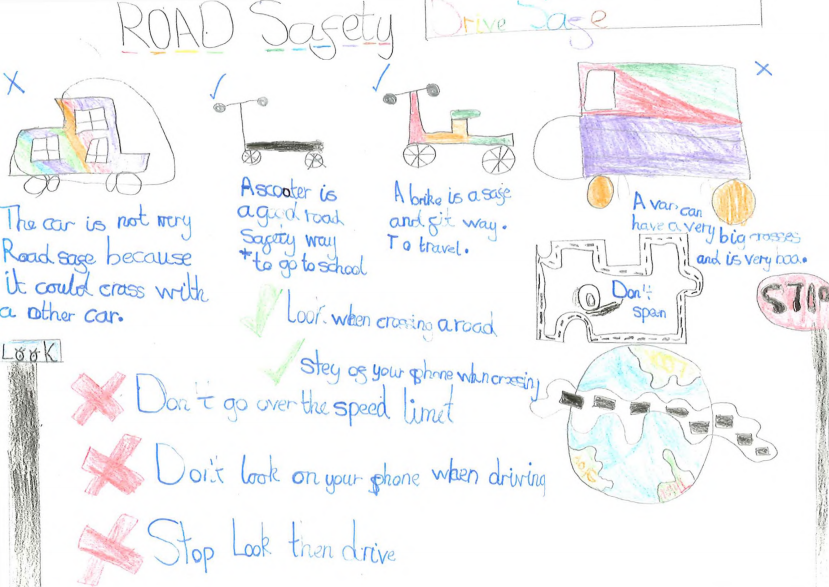 ROAD Safety
Drive Sage
The car is not very
Road sage because
it could crass with
a other car.
A scooter is
a good road
Safety way
*to go to school
A brike is a sage
and fit way.
To travel.
A van can
have a very big crosses
and is very baa.
Don't
span
STOP
LOOK
Look when crossing a road
stey og your phone when crossing
Don't go over the speed limit
Don't look on your phone when driving
Stop Look then drive